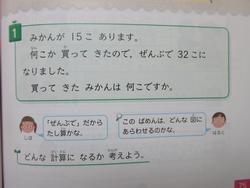 1
みかんが 15こ あります。
何こか 買って きたので、ぜんぶで 32こに
なりました。
買って きた みかんは 何こですか。
「ぜんぶで」だから
たし算かな。
この ばめんは、どんな 図に
あらわせるのかな。
しほ
はると
どんな 計算に なるか 考えよう。